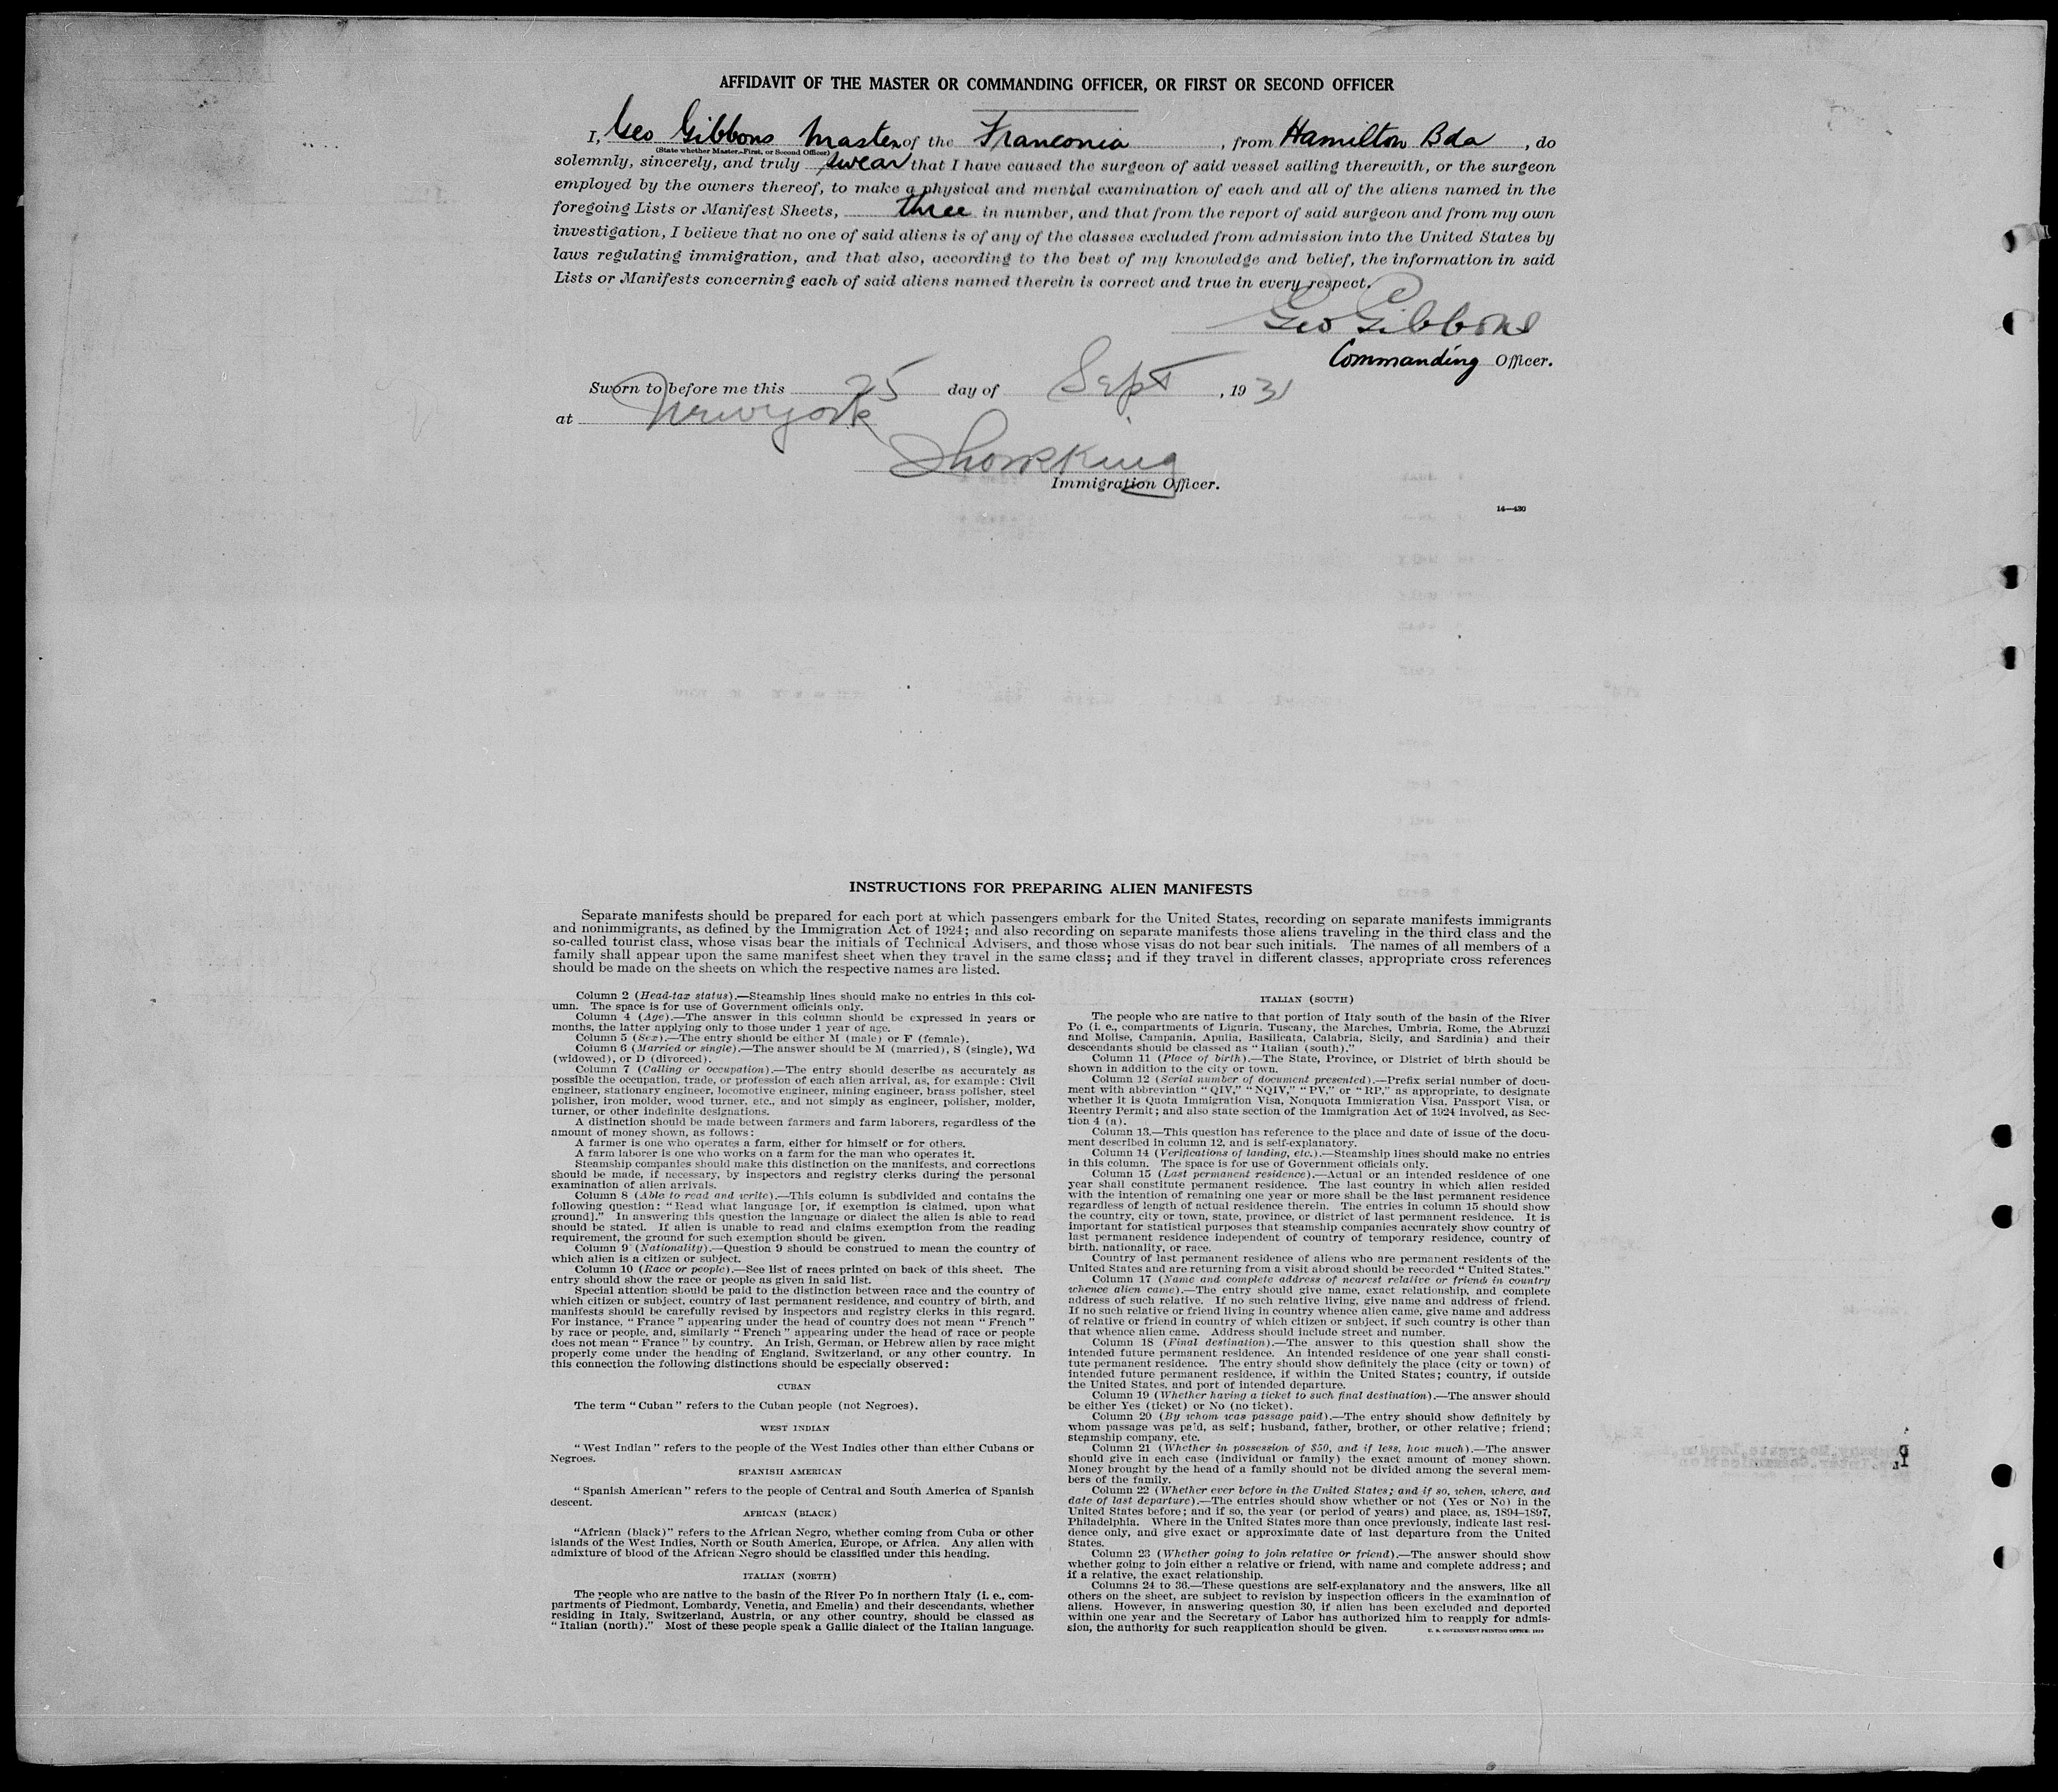 AFFIDAVIT OF THE MASTER OR COMMANDING OFFICER, OR FIRST OR SECOND OFFICER
I, Geo Gibbons Master of the Franconia, from Hamilton Bda, do
(State whether Master, First, or Second Officer)
solemnly, sincerely, and truly swear that I have caused the surgeon of said vessel sailing therewith, or the surgeon
employed by the owners thereof, to make a physical and mental examination of each and all of the aliens named in the
foregoing Lists or Manifest Sheets, three in number, and that from the report of said surgeon and from my own
investigation, I believe that no one of said aliens is of any of the classes excluded from admission into the United States by
laws regulating immigration, and that also, according to the best of my knowledge and belief, the information in said
Lists or Manifests concerning each of said aliens named therein is correct and true in every respect.
Geo Gibbons
Commanding Officer.
Sworn to before me this 25 day of Sept, 1931
at New york
King
Immigration Officer.
14—430
INSTRUCTIONS FOR PREPARING ALIEN MANIFESTS
Separate manifests should be prepared for each port at which passengers embark for the United States, recording on separate manifests immigrants
and nonimmigrants, as defined by the Immigration Act of 1924; and also recording on separate manifests those aliens traveling in the third class and the
so-called tourist class, whose visas bear the initials of Technical Advisers, and those whose visas do not bear such initials. The names of all members of a
family shall appear upon the same manifest sheet when they travel in the same class; and if they travel in different classes, appropriate cross references
should be made on the sheets on which the respective names are listed.
Column 2 (Head-tax status).—Steamship lines should make no entries in this col-
umn. The space is for use of Government officials only.
Column 4 (Age).—The answer in this column should be expressed in years or
months, the latter applying only to those under 1 year of age.
Column 5 (Sex).—The entry should be either M (male) or F (female).
Column 6 (Married or single).—The answer should be M (married), S (single), Wd
(widowed), or D (divorced).
Column 7 (Calling or occupation).—The entry should describe as accurately as
possible the occupation, trade, or profession of each alien arrival, as, for example: Civil
engineer, stationary engineer, locomotive engineer, mining engineer, brass polisher, steel
polisher, iron molder, wood turner, etc., and not simply as engineer, polisher, molder,
turner, or other indefinite designations.
A distinction should be made between farmers and farm laborers, regardless of the
amount of money shown, as follows:
A farmer is one who operates a farm, either for himself or for others.
A farm laborer is one who works on a farm for the man who operates it.
Steamship companies should make this distinction on the manifests, and corrections
should be made, if necessary, by inspectors and registry clerks during the personal
examination of alien arrivals.
Column 8 (Able to read and write).—This column is subdivided and contains the
following question: "Read what language [or, if exemption is claimed, upon what
ground]." In answering this question the language or dialect the alien is able to read
should be stated. If alien is unable to read and claims exemption from the reading
requirement, the ground for such exemption should be given.
Column 9 (Nationality).—Question 9 should be construed to mean the country of
which alien is a citizen or subject.
Column 10 (Race or people).—See list of races printed on back of this sheet. The
entry should show the race or people as given in said list.
Special attention should be paid to the distinction between race and the country of
which citizen or subject, country of last permanent residence, and country of birth, and
manifests should be carefully revised by inspectors and registry clerks in this regard.
For instance, "France" appearing under the head of country does not mean "French"
by race or people, and, similarly "French" appearing under the head of race or people
does not mean "France" by country. An Irish, German, or Hebrew alien by race might
properly come under the heading of England, Switzerland, or any other country. In
this connection the following distinctions should be especially observed:
CUBAN
The term "Cuban" refers to the Cuban people (not Negroes).
WEST INDIAN
"West Indian" refers to the people of the West Indies other than either Cubans or
Negroes.
SPANISH AMERICAN
"Spanish American" refers to the people of Central and South America of Spanish
descent.
AFRICAN (BLACK)
"African (black)" refers to the African Negro, whether coming from Cuba or other
islands of the West Indies, North or South America, Europe, or Africa. Any alien with
admixture of blood of the African Negro should be classified under this heading.
ITALIAN (NORTH)
The people who are native to the basin of the River Po in northern Italy (i. e., com-
partments of Piedmont, Lombardy, Venetia, and Emelia) and their descendants, whether
residing in Italy, Switzerland, Austria, or any other country, should be classed as
"Italian (north)." Most of these people speak a Gallic dialect of the Italian language.
ITALIAN (SOUTH)
The people who are native to that portion of Italy south of the basin of the River
Po (i. e., compartments of Liguria, Tuscany, the Marches, Umbria, Rome, the Abruzzi
and Molise, Campania, Apulia, Basilicata, Calabria, Sicily, and Sardinia) and their
descendants should be classed as "Italian (south)."
Column 11 (Place of birth).—The State, Province, or District of birth should be
shown in addition to the city or town.
Column 12 (Serial number of document presented).—Prefix serial number of docu-
ment with abbreviation "QIV," "NQIV," "PV," or "RP," as appropriate, to designate
whether it is Quota Immigration Visa, Nonquota Immigration Visa, Passport Visa, or
Reentry Permit; and also state section of the Immigration Act of 1924 involved, as Sec-
tion 4 (a).
Column 13.—This question has reference to the place and date of issue of the docu-
ment described in column 12, and is self-explanatory.
Column 14 (Verifications of landing, etc.).—Steamship lines should make no entries
in this column. The space is for use of Government officials only.
Column 15 (Last permanent residence).—Actual or an intended residence of one
year shall constitute permanent residence. The last country in which alien resided
with the intention of remaining one year or more shall be the last permanent residence
regardless of length of actual residence therein. The entries in column 15 should show
the country, city or town, state, province, or district of last permanent residence. It is
important for statistical purposes that steamship companies accurately show country of
last permanent residence independent of country of temporary residence, country of
birth, nationality, or race.
Country of last permanent residence of aliens who are permanent residents of the
United States and are returning from a visit abroad should be recorded "United States."
Column 17 (Name and complete address of nearest relative or friend in country
whence alien came).—The entry should give name, exact relationship, and complete
address of such relative. If no such relative living, give name and address of friend.
If no such relative or friend living in country whence alien came, give name and address
of relative or friend in country of which citizen or subject, if such country is other than
that whence alien came. Address should include street and number.
Column 18 (Final destination).—The answer to this question shall show the
intended future permanent residence. An intended residence of one year shall consti-
tute permanent residence. The entry should show definitely the place (city or town) of
intended future permanent residence, if within the United States; country, if outside
the United States, and port of intended departure.
Column 19 (Whether having a ticket to such final destination).—The answer should
be either Yes (ticket) or No (no ticket).
Column 20 (By whom was passage paid).—The entry should show definitely by
whom passage was paid, as self; husband, father, brother, or other relative; friend;
steamship company, etc.
Column 21 (Whether in possession of $50, and if less, how much).—The answer
should give in each case (individual or family) the exact amount of money shown.
Money brought by the head of a family should not be divided among the several mem-
bers of the family.
Column 22 (Whether ever before in the United States; and if so, when, where, and
date of last departure).—The entries should show whether or not (Yes or No) in the
United States before; and if so, the year (or period of years) and place, as, 1894–1897,
Philadelphia. Where in the United States more than once previously, indicate last resi-
dence only, and give exact or approximate date of last departure from the United
States.
Column 23 (Whether going to join relative or friend).—The answer should show
whether going to join either a relative or friend, with name and complete address; and
if a relative, the exact relationship.
Columns 24 to 36.—These questions are self-explanatory and the answers, like all
others on the sheet, are subject to revision by inspection officers in the examination of
aliens. However, in answering question 30, if alien has been excluded and deported
within one year and the Secretary of Labor has authorized him to reapply for admis-
sion, the authority for such reapplication should be given.
U. S. GOVERNMENT PRINTING OFFICE: 1929